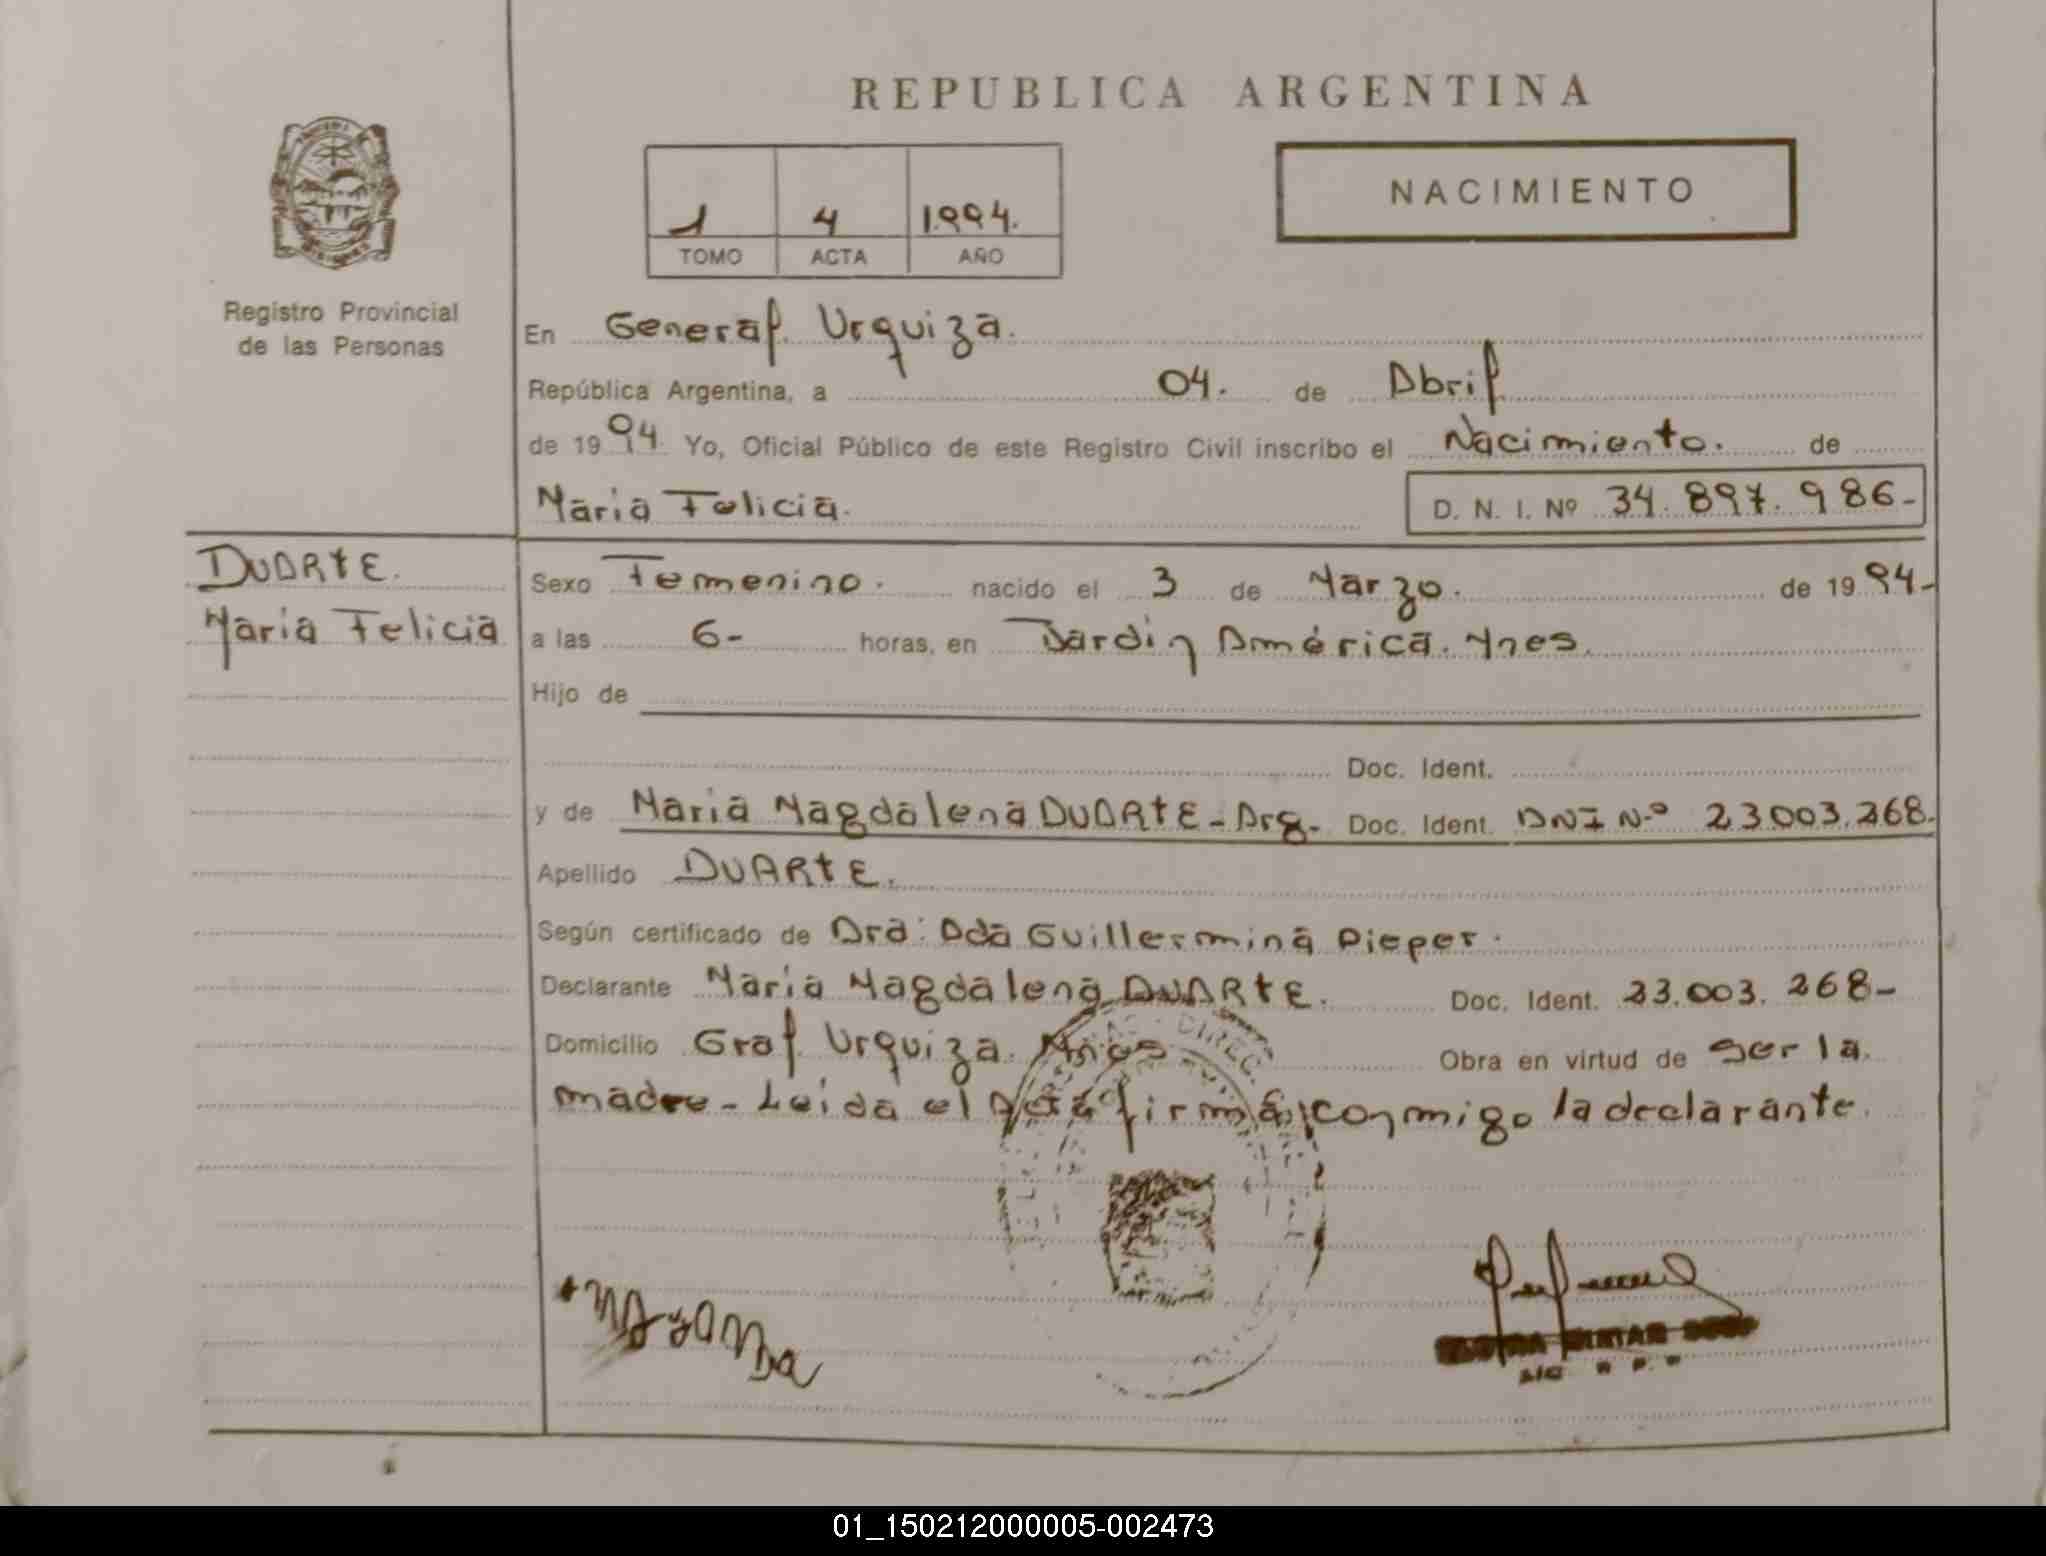 REPUBLICA ARGENTINA
NACIMIENTO
1 4 1.994.
TOMO ACTA AÑO
Registro Provincial
de las Personas
En General Urquiza.
República Argentina, a 04. de Abril
de 1994 Yo, Oficial Público de este Registro Civil inscribo el Nacimiento. de
Maria Felicia. D. N. I. Nº 34.897.986-
DUARTE.
Maria Felicia
Sexo Femenino. nacido el 3 de Marzo. de 1994-
a las 6- horas, en Jardin América. Mnes.
Hijo de
Doc. Ident.
y de Maria Magdalena DUARTE - Arg. Doc. Ident. DNI Nº 23.003.268.
Apellido DUARTE.
Según certificado de Dra: Ada Guillermina Pieper.
Declarante Maria Magdalena DUARTE. Doc. Ident. 23.003.268-
Domicilio Gral Urquiza. Mnes Obra en virtud de ser la
madre - Leida el Acta firma conmigo la declarante.
DIREC.
01_150212000005-002473